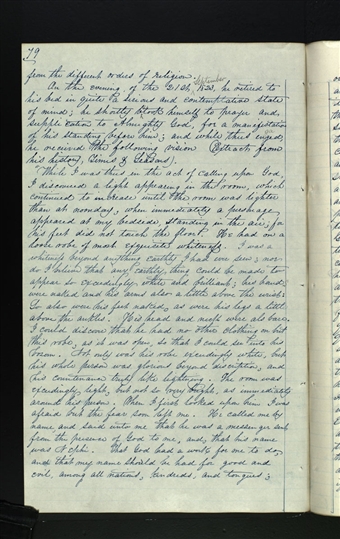 79
from the different orders of religion.
On the evening of the 21st, September 1823, he retired to
his bed in quite a serious and contemplative state
of mind; he shortly betook himself to prayer and
supplication to Almighty God, for a manifestation
of his standing before him; and while thus engaged
he received the following vision (Extracts from
his history. Times & Seasons).
While I was thus in the act of calling upon God,
I discovered a light appearing in the room, which
continued to increase until the room was lighter
than at noonday, when immediately a personage
appeared at my bedside, standing in the air, for
his feet did not touch the floor. He had on a
loose robe of most exquisite whiteness. I was a
whiteness beyond anything earthly I had ever seen; nor
do I believe that any earthly thing could be made to
appear so exceedingly white and brilliant; his hands
were naked and his arms also a little above the wrist.
So also were his feet naked, as were his legs a little
above the ankles. His head and neck were also bare.
I could discover that he had no other clothing on but
this robe, as it was open, so that I could see into his
bosom. Not only was his robe exceedingly white, but
his whole person was glorious beyond description, and
his countenance truly like lightning. The room was
exceedingly light, but not so very bright, as immediately
around his person. When I first looked upon him I was
afraid but the fear soon left me. He called me by
name and said unto me that he was a messenger sent
from the presence of God to me, and, that his name
was Nephi. That God had a work for me to do,
and that my name should be had for good and
evil, among all nations, kindreds, and tongues;